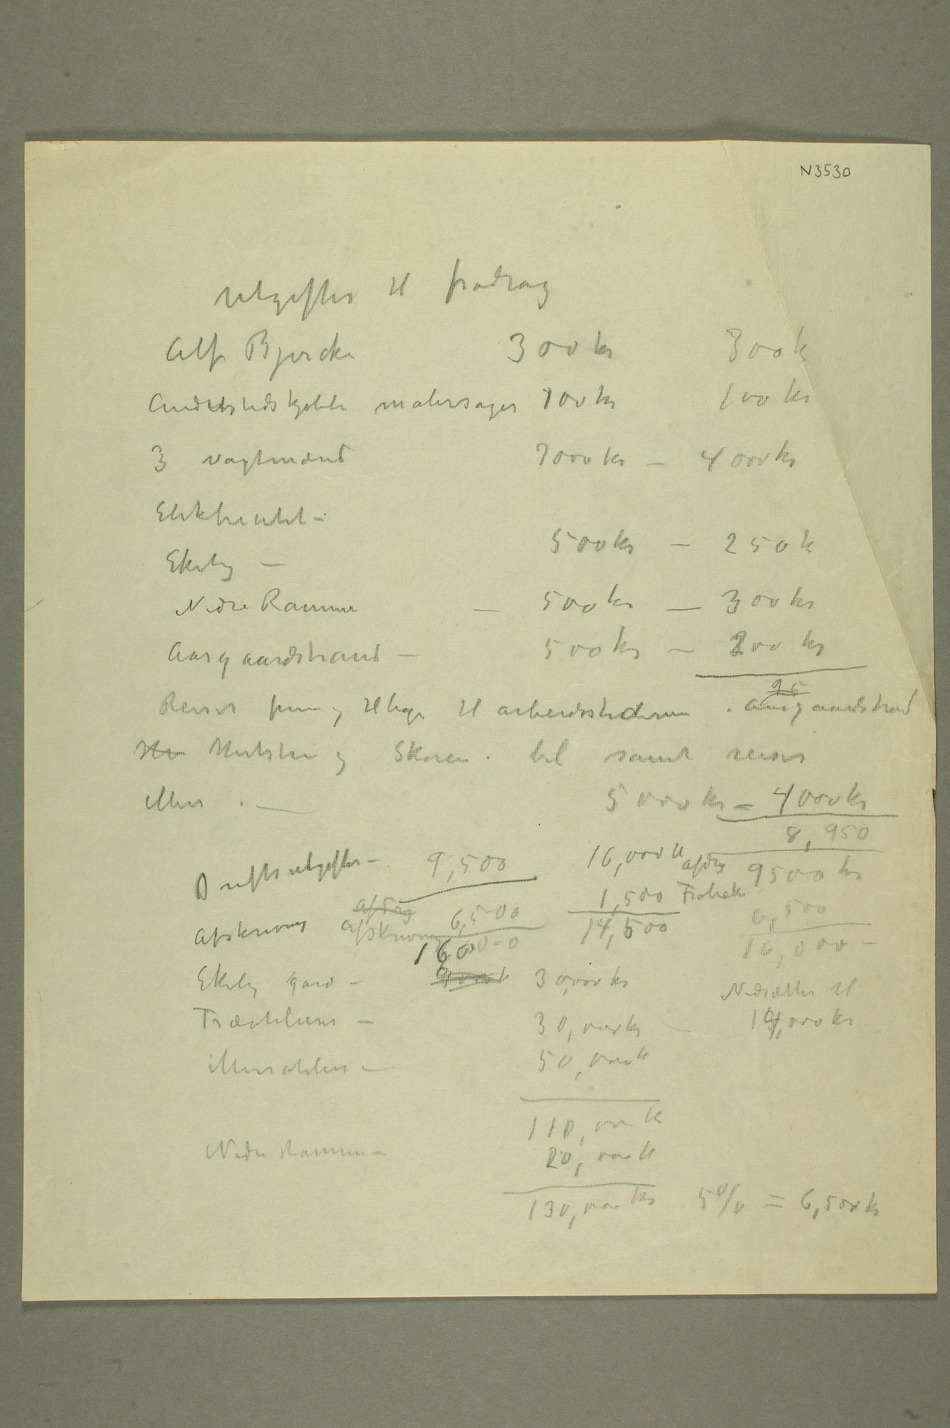 N3530
Utgifter til fradrag
Alf Bjercke 300 kr 300 k
malersager 700 kr 100 kr
3 vagtmænd 7000 kr – 4000 kr
500 kr – 250 k
Ekely –
Nedre Ramme – 500 kr – 300 kr
Aasgaardstrand – 500 kr – 200 kr
Reiser frem og tilbage til arbeidsstederne . Aasgaardstrand
Hvitsten og Skøien . bil samt reiser
ellers . – 5000 kr – 4000 kr
8,950
Driftsutgifter – 9,500 16,000 k afdrag 9500 kr
1,500 Fratræk
Afskrivning afdrag afskrivning 6,500 14,500 6,500
16000 16,000 –
Ekely gard – 30,000 kr Nedsættes til
– 30,000 kr – 14,000 kr
– 50,000 k
110,000 k
Nedre Ramme – 20,000 k
130,000 kr 5% = 6,500 k